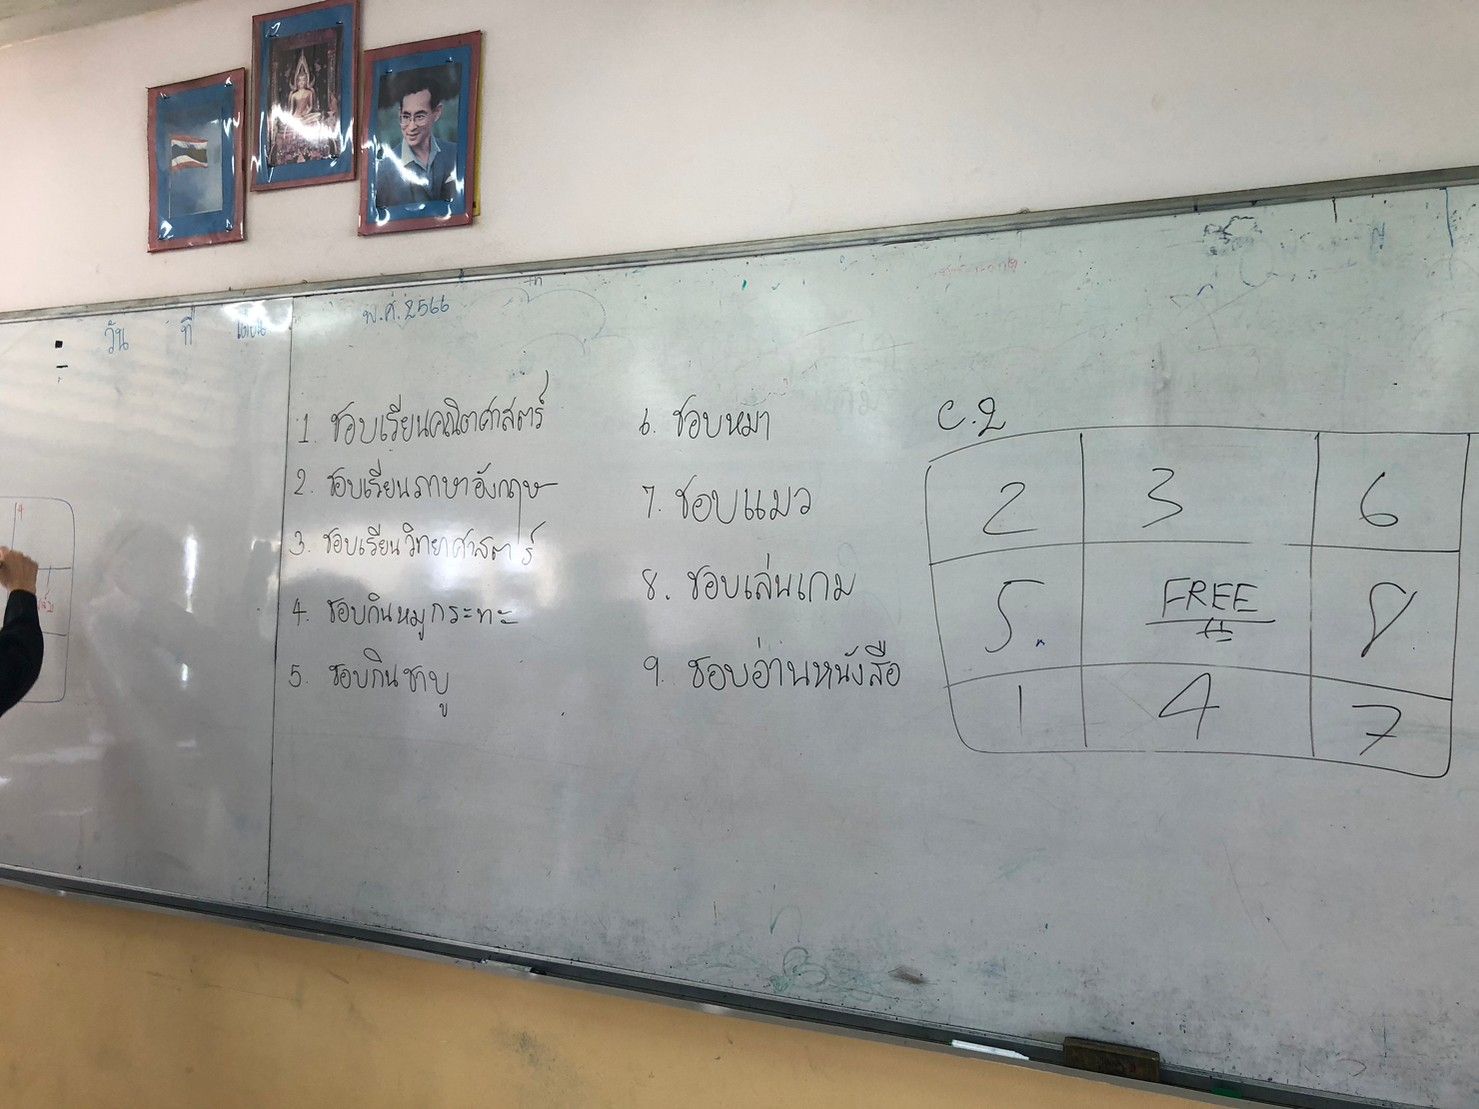 วัน ที่ เดือน พ.ศ. 2566
1. ชอบเรียนคณิตศาสตร์
2. ชอบเรียนภาษาอังกฤษ
3. ชอบเรียนวิทยาศาสตร์
4. ชอบกินหมูกระทะ
5. ชอบกินชาบู
6. ชอบหมา
7. ชอบแมว
8. ชอบเล่นเกม
9. ชอบอ่านหนังสือ
2 3 6
5 FREE 8
1 4 7
4